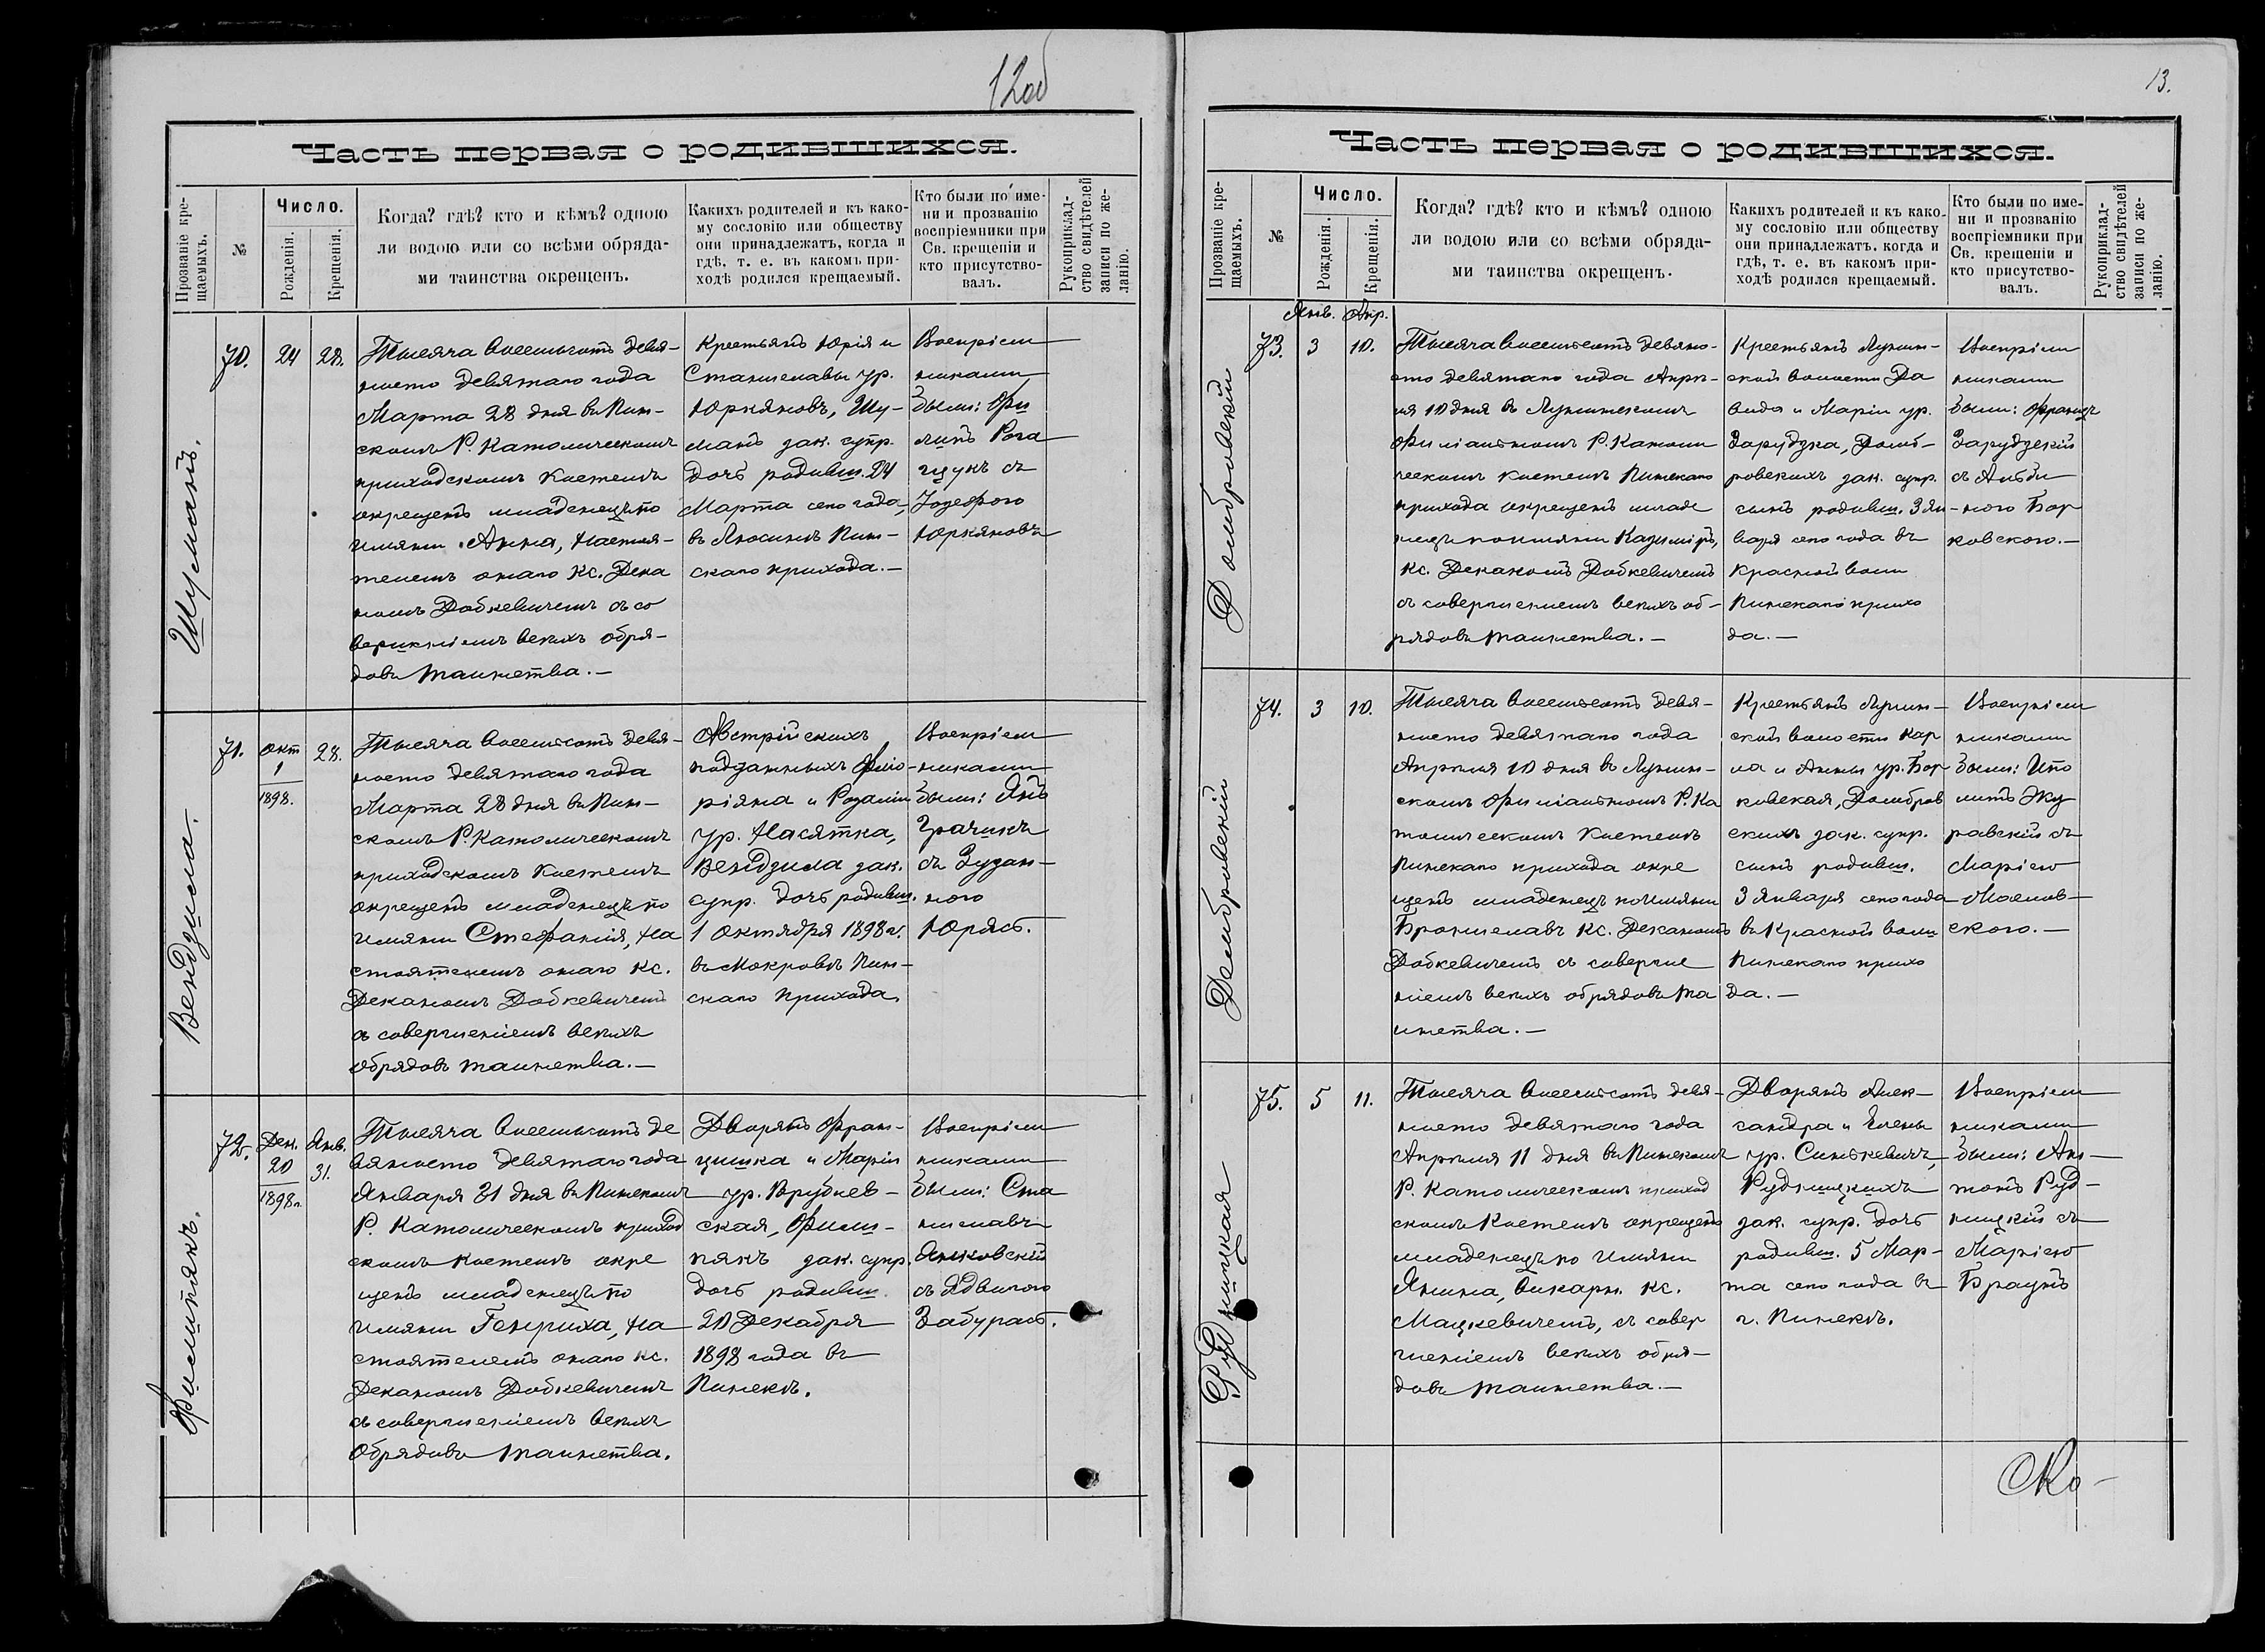 12об
Часть первая о родившихся.
Прозваніе кре-
щаемыхъ.
№
Число.
Рожденія.
Крещенія.
Когда? гдѣ? кто и кѣмъ? одною
ли водою или со всѣми обряда-
ми таинства окрещенъ.
Какихъ родителей и къ како-
му сословію или обществу
они принадлежатъ, когда и
гдѣ, т. е. въ какомъ при-
ходѣ родился крещаемый.
Кто были по име-
ни и прозванію
воспріемники при
Св. крещеніи и
кто присутство-
валъ.
Рукоприклад-
ство свидѣтелей
записи по же-
ланію.
Шуманъ.
70.
24
28.
Тысяча восемьсотъ девя-
носто девятаго года
Марта 28 дня въ Пин-
скомъ Р. Католическомъ
приходскомъ костелѣ
окрещенъ младенецъ по
имяни Анна, Настоя-
телемъ онаго Кс. Дека
номъ Добкевичемъ съ со
вершеніемъ всѣхъ обря-
довъ таинства.—
Крестьянъ Юрія и
Станиславы ур.
Юркяновъ, Шу-
манъ зак. супр.
дочь родивш. 24
Марта сего года,
въ Люсинѣ Пин-
скаго прихода.—
Воспріем
никами
были: Фи
липъ Рога
цукъ съ
Іозефою
Юркяновъ
Вендзила.
71.
Окт
1
1898.
28.
Тысяча восемьсотъ девя-
носто девятаго года
Марта 28 дня въ Пин-
скомъ Р. Католическомъ
приходскомъ костелѣ
окрещенъ младенецъ по
имяни Стефанія, На
стоятелемъ онаго Кс.
Деканомъ Добкевичемъ
съ совершеніемъ всѣхъ
обрядовъ таинства.—
Австрійскихъ
подданныхъ Фло-
ріяна и Розаліи
ур. Насятка,
Вендзила зак.
супр. дочь родивш.
1 Октября 1898 г.
въ Мокровѣ Пин-
скаго прихода.
Воспріем
никами
были: Янъ
Грачикъ
съ Зузан-
ною
Юрясъ.
Филипякъ.
72.
Дек.
20
1898 г.
Янв.
31.
Тысяча восемьсотъ де
вяносто девятаго года
Января 31 дня въ Пинскомъ
Р. Католическомъ приход
скомъ костелѣ окре
щенъ младенецъ по
имяни Генриха, На
стоятелемъ онаго Кс.
Деканомъ Добкевичемъ
съ совершеніемъ всѣхъ
обрядовъ таинства.
Дворянъ Фран-
цишка и Маріи
ур. Врублев-
ская, Фили-
пякъ зак. супр
дочь родивш.
20 Декабря
1898 года въ
Пинскѣ.
Воспріем
никами
были: Ста
ниславъ
Янковскій
съ Ядвигою
Забурасъ.
13.
Часть первая о родившихся.
Прозваніе кре-
щаемыхъ.
№
Число.
Рожденія.
Крещенія.
Когда? гдѣ? кто и кѣмъ? одною
ли водою или со всѣми обряда-
ми таинства окрещенъ.
Какихъ родителей и къ како-
му сословію или обществу
они принадлежатъ, когда и
гдѣ, т. е. въ какомъ при-
ходѣ родился крещаемый.
Кто были по име-
ни и прозванію
воспріемники при
Св. крещеніи и
кто присутство-
валъ.
Рукоприклад-
ство свидѣтелей
записи по же-
ланію.
Домбровскій
73.
Янв.
3
Апр.
10.
Тысяча восемьсотъ девяно-
сто девятаго года Апрѣ-
ля 10 дня въ Лунинскомъ
филіальномъ Р. Католи
ческомъ костелѣ Пинскаго
прихода окрещенъ младе
нецъ по имяни Казиміръ,
Кс. Деканомъ Добкевичемъ
съ совершеніемъ всѣхъ об-
рядовъ таинства.—
Крестьянъ Лунин-
ской волости Да
вида и Маріи ур.
Зарудзка, Домб-
ровскихъ зак. супр.
сынъ родивш. 3 Ян-
варя сего года въ
Красной воли
Пинскаго прихо
да.—
Воспріем
никами
были: Францъ
Зарудзкій
съ Альби
ною Бор
ковскою.—
Домбровскій
74.
3
10.
Тысяча восемьсотъ девя-
носто девятаго года
Апрѣля 10 дня въ Лунин-
скомъ филіальномъ Р. Ка
толическомъ костелѣ
Пинскаго прихода окре
щенъ младенецъ по имяни
Брониславъ Кс. Деканомъ
Добкевичемъ съ соверше
ніемъ всѣхъ обрядовъ та
инства.—
Крестьянъ Лунин-
ской волости Кар
ла и Анны ур. Бор
ковская, Домбров
скихъ зак. супр.
сынъ родивш.
3 Января сего года
въ Красной воли
Пинскаго прихо
да.—
Воспріем
никами
были: Ипо
литъ Жу
равскій съ
Маріею
Маков-
скою.—
Рудницкая
75.
5
11.
Тысяча восемьсотъ девя-
носто девятаго года
Апрѣля 11 дня въ Пинскомъ
Р. Католическомъ приход
скомъ костелѣ окрещенъ
младенецъ по имяни
Янина, викарн. Кс.
Мацкевичемъ, съ совер
шеніемъ всѣхъ обря-
довъ таинства.—
Дворянъ Алек-
сандра и Елены
ур. Синькевичъ,
Рудницкихъ
зак. супр. дочь
родивш. 5 Мар-
та сего года въ
г. Пинскѣ.
Воспріем
никами
были: Ан-
тонъ Руд-
ницкій съ
Маріею
Браунъ